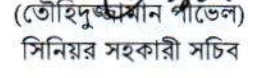 (তৌহিদুজ্জামান পাভেল)
সিনিয়র সহকারী সচিব